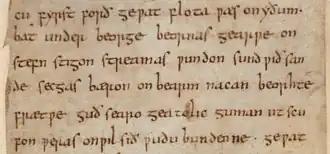 cu fyrst forð gepat flota pæs on yðum.
bat under beorge beornas gearpe on
stefn stigon streamas pundon sund pið san
de secgas bæron on bearm nacan beorhte
frætpe guð searo geatolic guman ut scu
fon peras on pil sið pudu bundenne. gepat